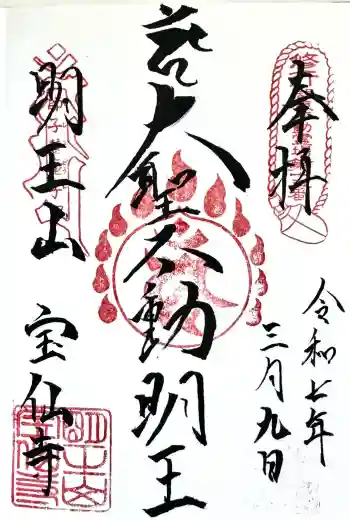 奉拝
令和七年
三月九日
大聖不動明王
明王山
宝仙寺